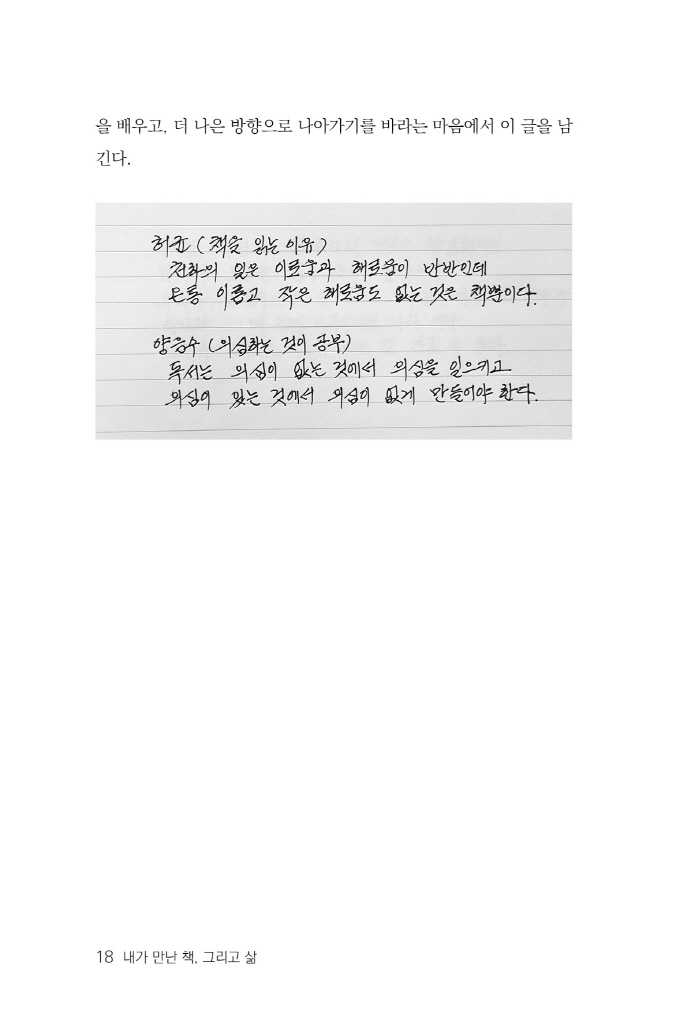 을 배우고, 더 나은 방향으로 나아가기를 바라는 마음에서 이 글을 남
긴다.
허균 (책을 읽는 이유)
천하의 일은 이로움과 해로움이 반반인데
온통 이롭고 작은 해로움도 없는 것은 책뿐이다.
양응수 (의심하는 것이 공부)
독서는 의심이 없는 것에서 의심을 일으키고
의심이 있는 것에서 의심이 없게 만들어야 한다.
18 내가 만난 책, 그리고 삶